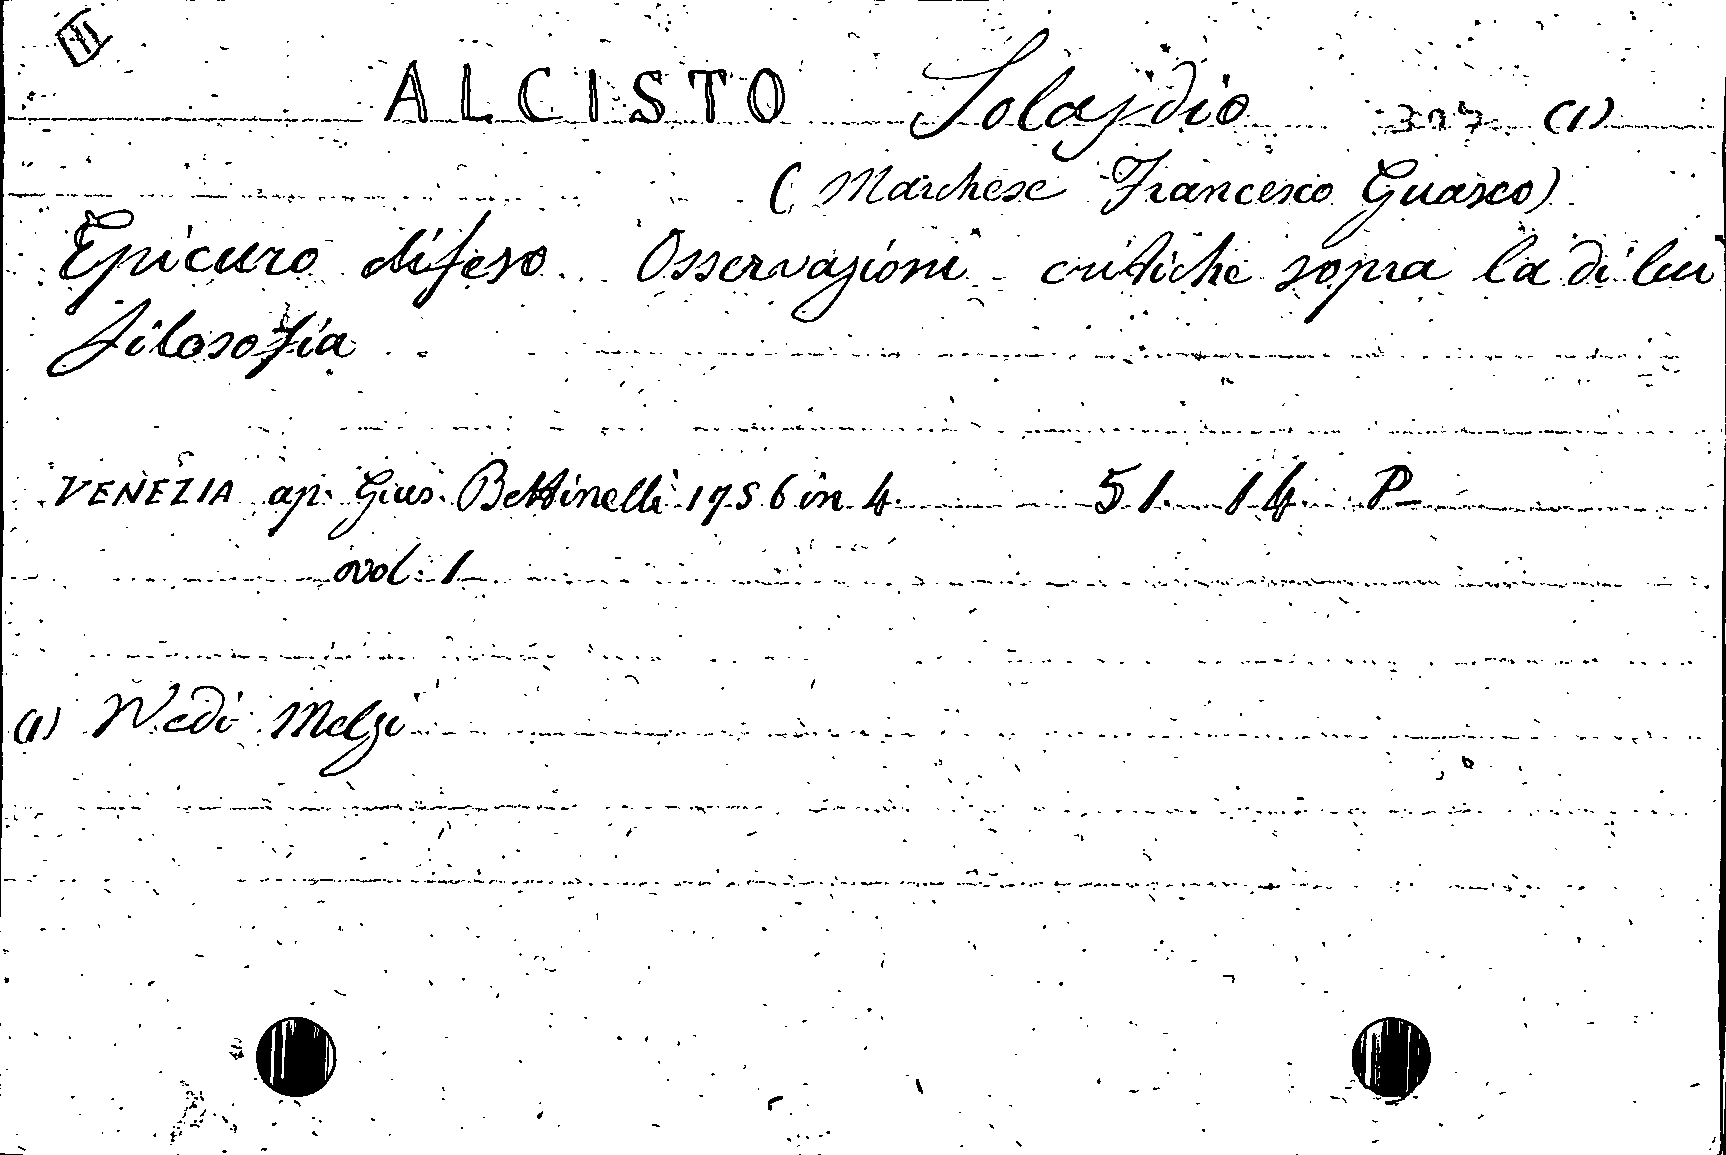 ALCISTO Solajdio (1)
(Marchese Francesco Guasco)
Epicuro difeso. Osservazioni critiche sopra la di lui
filosofia
VENEZIA ap. Gius. Bettinelli 1756 in 4. 51. 14. P
vol. 1
(1) Vedi Melzi